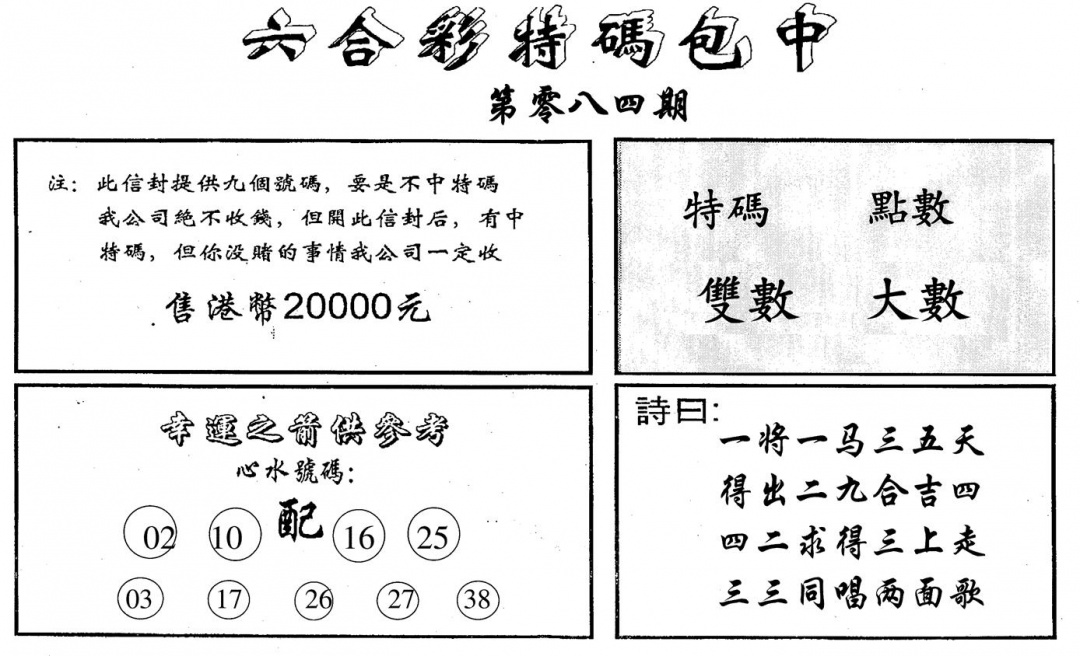 六合彩特碼包中
第零八四期
注：此信封提供九個號碼，要是不中特碼
我公司絶不收錢，但開此信封后，有中
特碼，但你没賭的事情我公司一定收
售港幣20000元
特碼 點數
雙數 大數
幸運之箭供參考
心水號碼：
02 10 配 16 25
03 17 26 27 38
詩曰：
一将一马三五天
得出二九合吉四
四二求得三上走
三三同唱两面歌